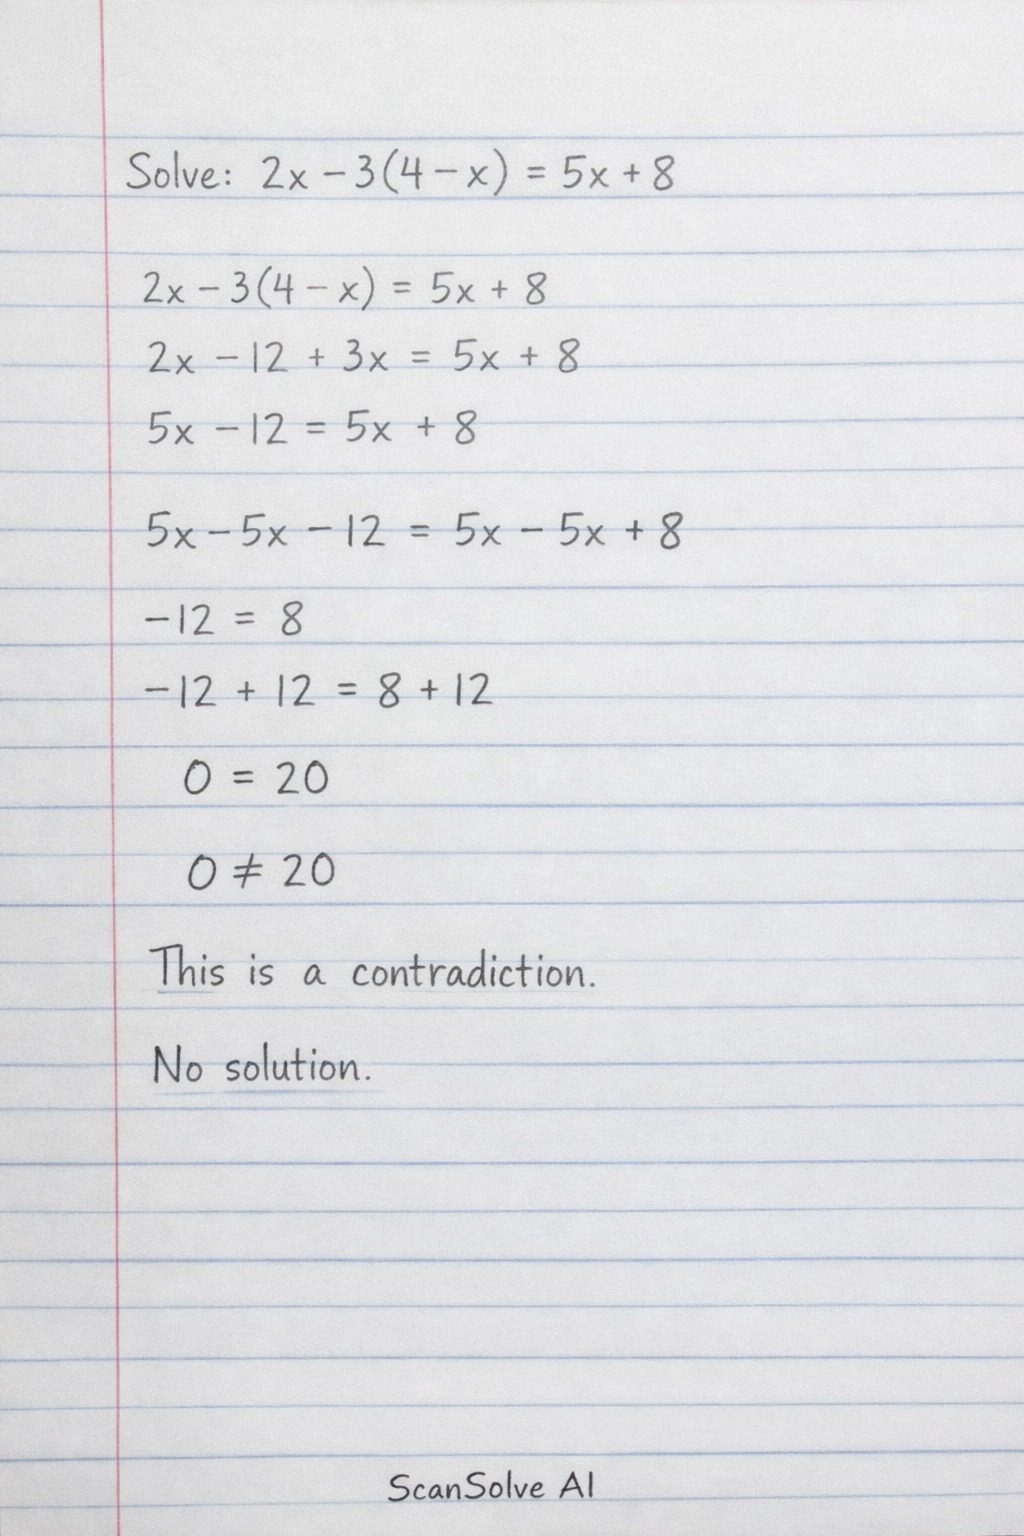 Solve: 2x − 3(4 − x) = 5x + 8
2x − 3(4 − x) = 5x + 8
2x − 12 + 3x = 5x + 8
5x − 12 = 5x + 8
5x − 5x − 12 = 5x − 5x + 8
−12 = 8
−12 + 12 = 8 + 12
0 = 20
0 ≠ 20
This is a contradiction.
No solution.
ScanSolve AI